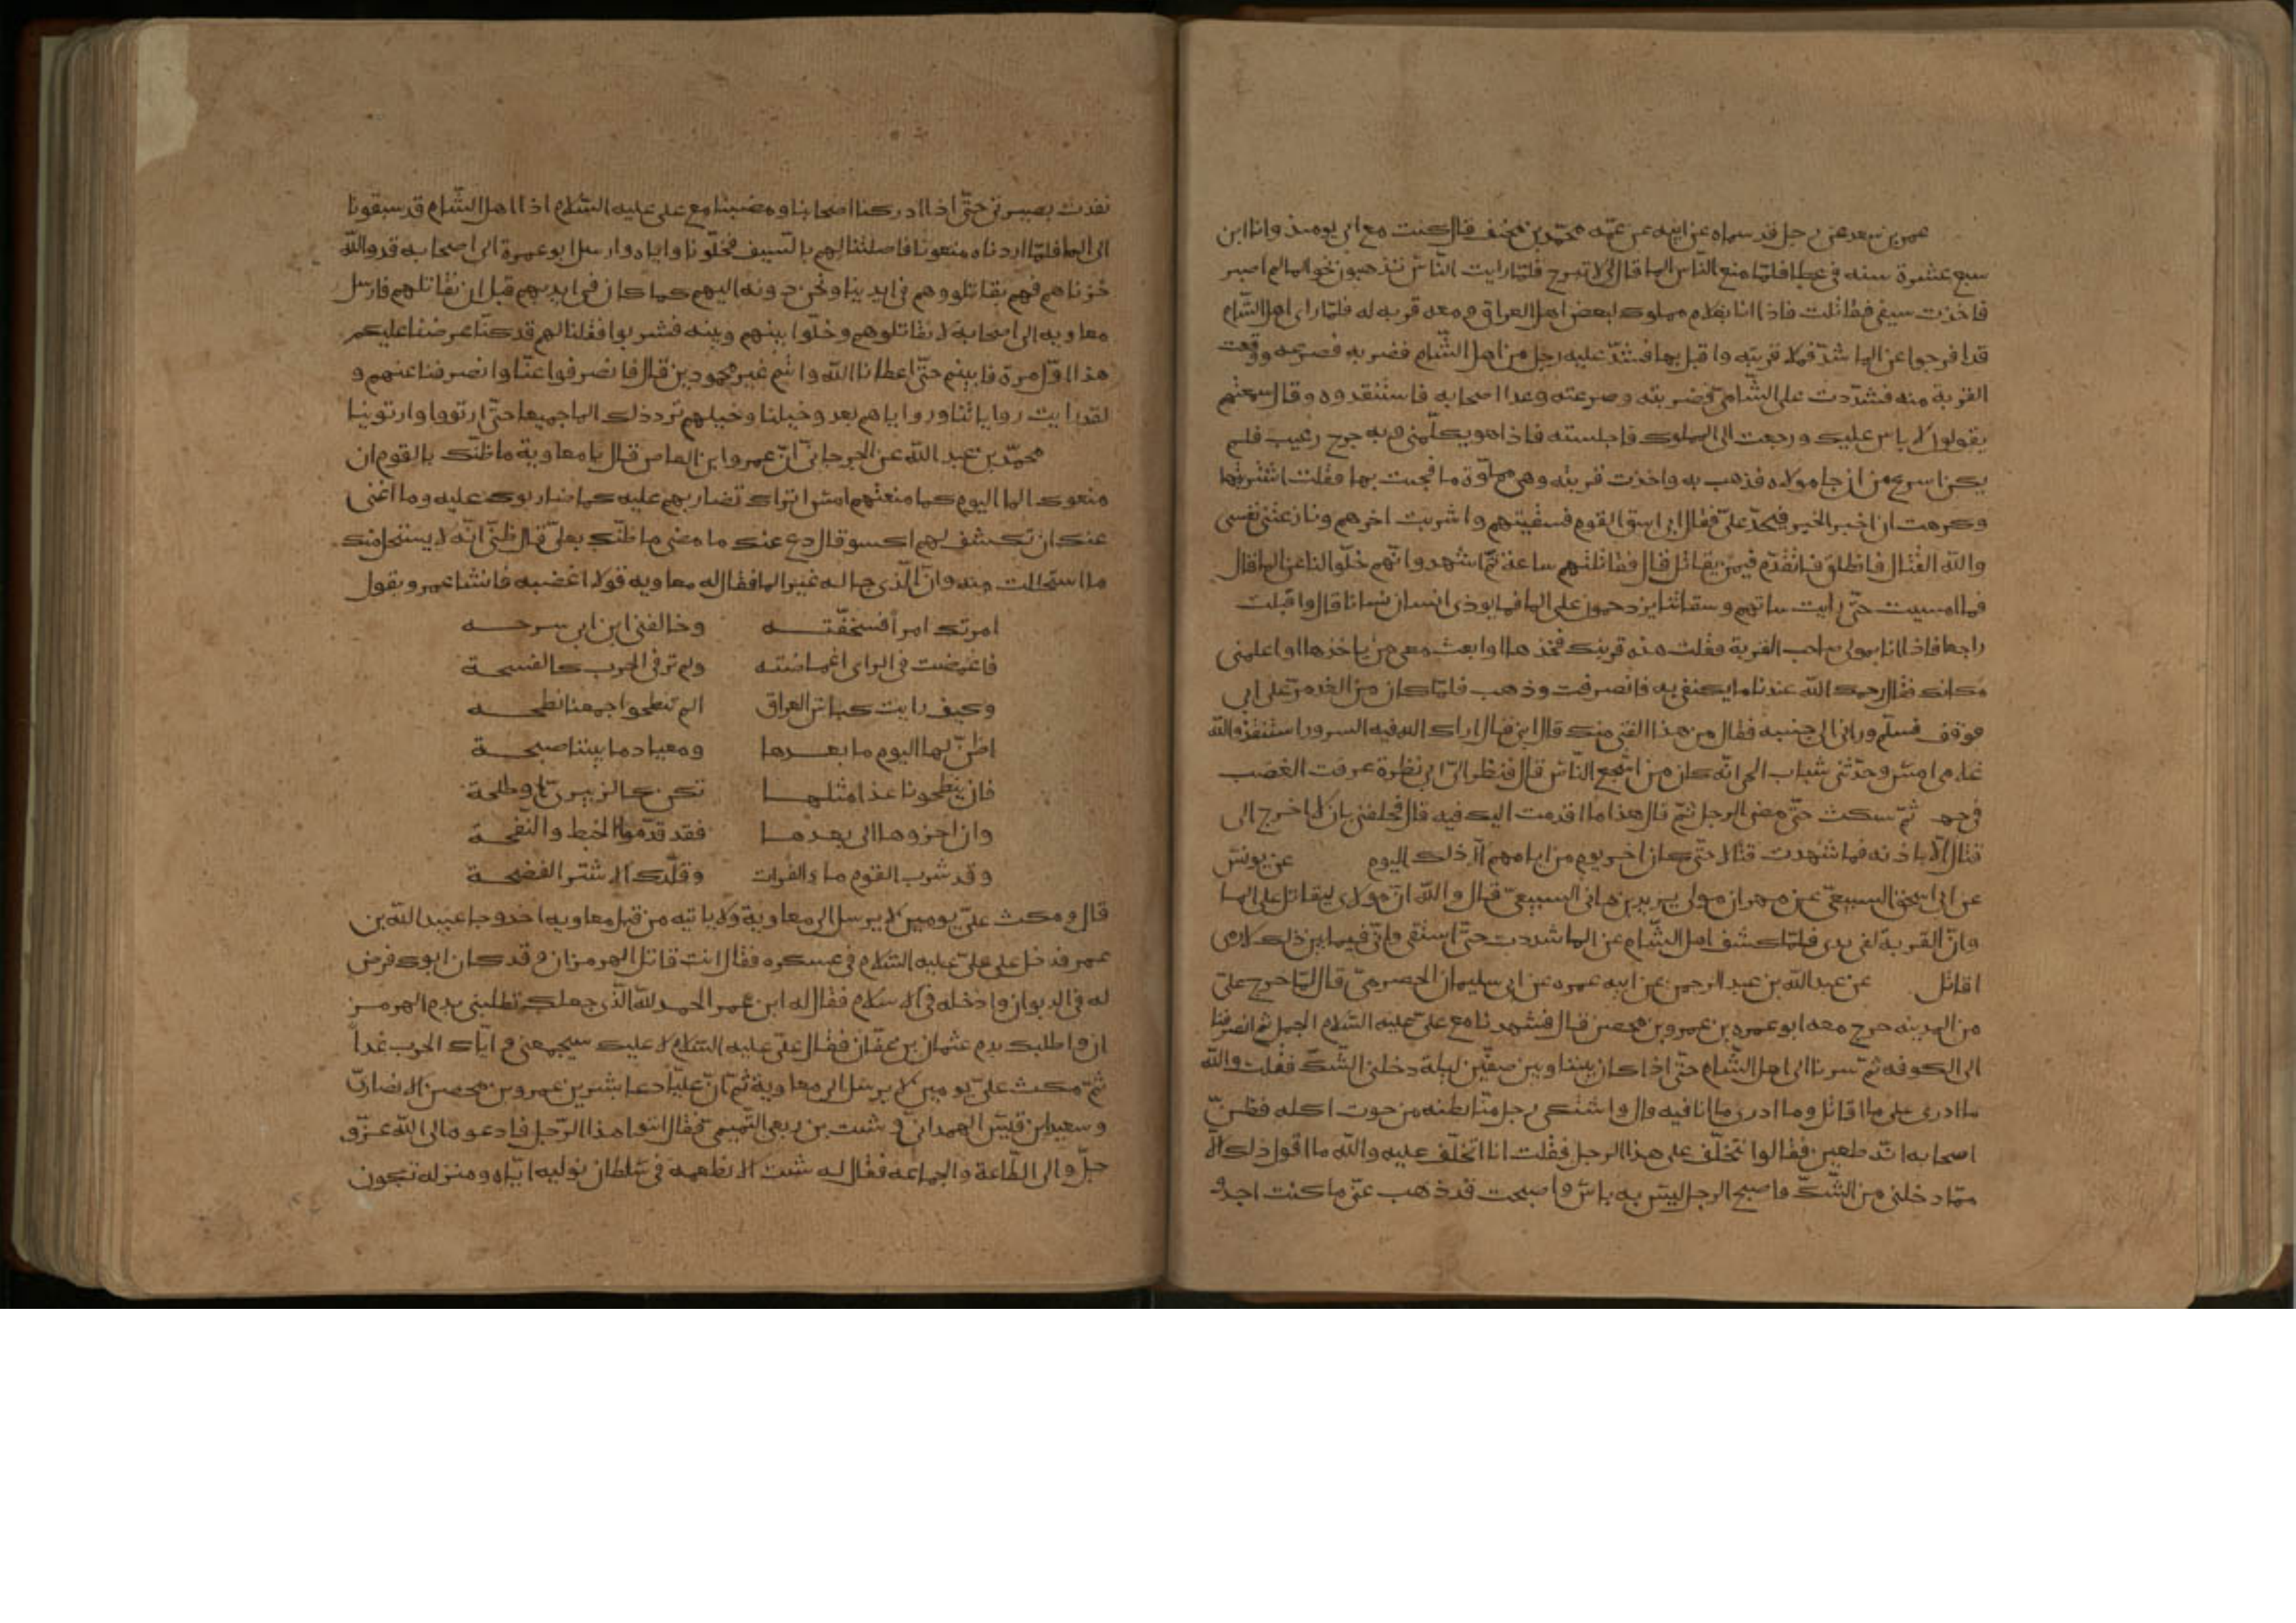 عمر بن سعد عن رجل قد سماه عن ابيه عن عمّه محمّد بن مخنف قال كنت مع ابي يومئذ وانا ابن
سبع عشرة سنه في عطا فلمّا منع الناس الما قال لي لا تبرح فلمّا رايت النّاس تذهبون نحو الما لم اصبر
فاخذت سيفي فقاتلت فاذا انا بغلام مملوك لبعض اهل العراق ومعه قربه له فلمّا راى اهل الشّام
قد افرجوا عن الما شدّ فملا قربته واقبل بها فشدّ عليه رجل من اهل الشّام فضربه فصرعه ووقعت
القربة منه فشدّدت على الشّامي فضربته وصرعته وعدا اصحابه فاستنقدوه وقال سمعتهم
يقولون لا باس عليك ورجعت الى المملوك فاجلسته فاذا هو يكلّمني وبه جرح رغيب فلم
يكن اسرع من ان جا مولاه فذهب به واخذت قربته وهي مملوّة ما فجيت بها فقلت اشتريتها
وكرهت ان اخبر الخبر فيجد عليّ فقال اي اسق القوم فسقيتهم واشربت اخرهم ونازعتني نفسي
والله القتال فانطلق فاتقدّم فيمن يقاتل قال فقاتلتهم ساعة ثمّ اشهد وانّهم خلّوا لنا عن الما قال
فما امسيت حتّى رايت سقاتهم وسقاتنا يزدحمون على الما فما يوذي انسان انسانا قال واقبلت
راجعا فاذا انا بمولى صاحب القربة فقلت هذه قربتك فخذها او ابعث معي من ياخذها او اعلمني
مكانك فقال رحمك الله عندنا ما يكتفي به فانصرفت وذهب فلمّا كان من الغد مرّ على ابي
فوقف فسلّم وراني الى جنبه فقال من هذا الفتى منك قال ابني قال اراك الله فيه السرور استنقذ والله
غلامي امس وحدّثني شباب الحي انّه كان من اشجع النّاس قال فنظر اليّ ابي نظرة عرفت الغضب
في وجهه ثمّ سكت حتّى مضى الرجل ثمّ قال هذا ما اقدمت اليك فيه قال فحلفني بان لا اخرج الى
قتال الّا باذنه فما شهدت قتالا حتّى كان اخر يوم من ايامهم الّا ذلك اليوم عن يونس
عن ابي اسحق السبيعيّ عن مهران مولى يزيد بن هاني السبيعيّ قال والله انّ مولاي ليقاتل على الما
وانّ القربة لفي يدي فلمّا كشف اهل الشّام عن الما شددت حتّى استقى واني فيما بين ذلك لارمي
اقاتل عن عبد الله بن عبد الرحمن عن ابيه عمره عن ابي سليمان الحضرميّ قال لمّا خرج عليّ
من المدينه خرج معه ابو عمره بن عمرو بن محصن قال فشهدنا مع عليّ عليه السّلام الجمل ثم انصرفنا
الى الكوفه ثمّ سرنا الى اهل الشّام حتّى اذا كان بيننا وبين صفّين ليلة دخلني الشّك فقلت والله
ما ادري على ما اقاتل وما ادري ما انا فيه وال واشتكى رجل منّا بطنه من حوت اكله فظنّ
اصحابه انّه طعين فقالوا نتخلّف على هذا الرجل فقلت انا اتخلّف عليه والله ما اقول ذلك الّا
ممّا دخلني من الشّكّ فاصبح الرجل ليس به باس واصبحت قد ذهب عنّي ما كنت اجد و
نفدت بصيرتي حتّى اذا ادركنا اصحابنا ومضينا مع علي عليه السّلام اذا اهل الشّام قد سبقونا
الى الما فلمّا اردناه منعونا فاصلتنا لهم بالسّيف فخلّونا واياه وارسل ابو عمرة الى اصحابه قد والله
حزناهم فهم يقاتلو وهم في ايدينا ونحن دونه اليهم كما كان في ايديهم قبل ان نقاتلهم فارسل
معاويه الى اصحابه لا تقاتلوهم وخلّوا بينهم وبينه فشربوا فقلنا لهم قد كنّا عرضنا عليكم
هذا اوّل مرة فابيتم حتّى اعطانا الله وانتم غير محمودين قال فانصرفوا عنّا وانصرفنا عنهم و
لقد رايت روايانا ورواياهم بعد وخيلنا وخيلهم ترد ذلك الما جميعا حتّى ارتووا وارتوينا
محمّد بن عبد الله عن الجرجانيّ انّ عمرو ابن العاص قال يا معاوية ما ظنّك بالقوم ان
منعوك الما اليوم كما منعتهم امس اتراك تضاربهم عليه كما ضاربوك عليه وما اغنى
عنك ان تكشف لهم السو قال دع عنك ما مضى ما ظنّك بعليّ قال ظنّي انّه لا يستحل منك
ما استحللت منه وانّ الّذي جا له غير الما فقال له معاويه قولا اغضبه فانشا عمرو يقول
امرتك امراً فسخّفته وخالفني ابن ابي سرحه
فاغمضت في الراي اغماضته ولم تر في الحرب كالفسحة
وكيف رايت كباش العراق الم تنطحوا جمعنا نطحه
اظنّ لها اليوم ما بعدها وميعاد ما بيننا صبحة
فان ينطحونا غدا مثلها نكن كالزبيريّ او طلحة
وان اخروها الى بعدها فقد قدّموا الخبط والنّفحة
وقد شرب القوم ماء الفرات وقلّدك الاشتر الفضحة
قال ومكث عليّ يومين لا يرسل الى معاوية ولا ياتيه من قبل معاويه احد وجا عبيد الله بن
عمر فدخل على عليّ عليه السّلام في عسكره فقال انت قاتل الهرمزان وقد كان ابوك فرض
له في الديوان وادخله في الاسلام فقال له ابن عمر الحمد لله الّذي جعلك تطلبني بدم الهرمز
ان واطلبك بدم عثمان بن عفّان فقال عليّ عليه السّلام لا عليك سيجمعني و ايّاك الحرب غداً
ثمّ مكث عليّ يومين لا يرسل الى معاوية ثمّ انّ عليّا دعا بشير بن عمرو بن محصن الانصاريّ
وسعيد بن قيس الهمدانيّ و شبث بن ربعي التّميمي فقال ائتوا هذا الرّجل فادعوه الى الله عزّ و
جلّ والى الطّاعة والجماعه فقال له شبث الا نطمعه في سلطان نوليه ايّاه ومنزله تكون